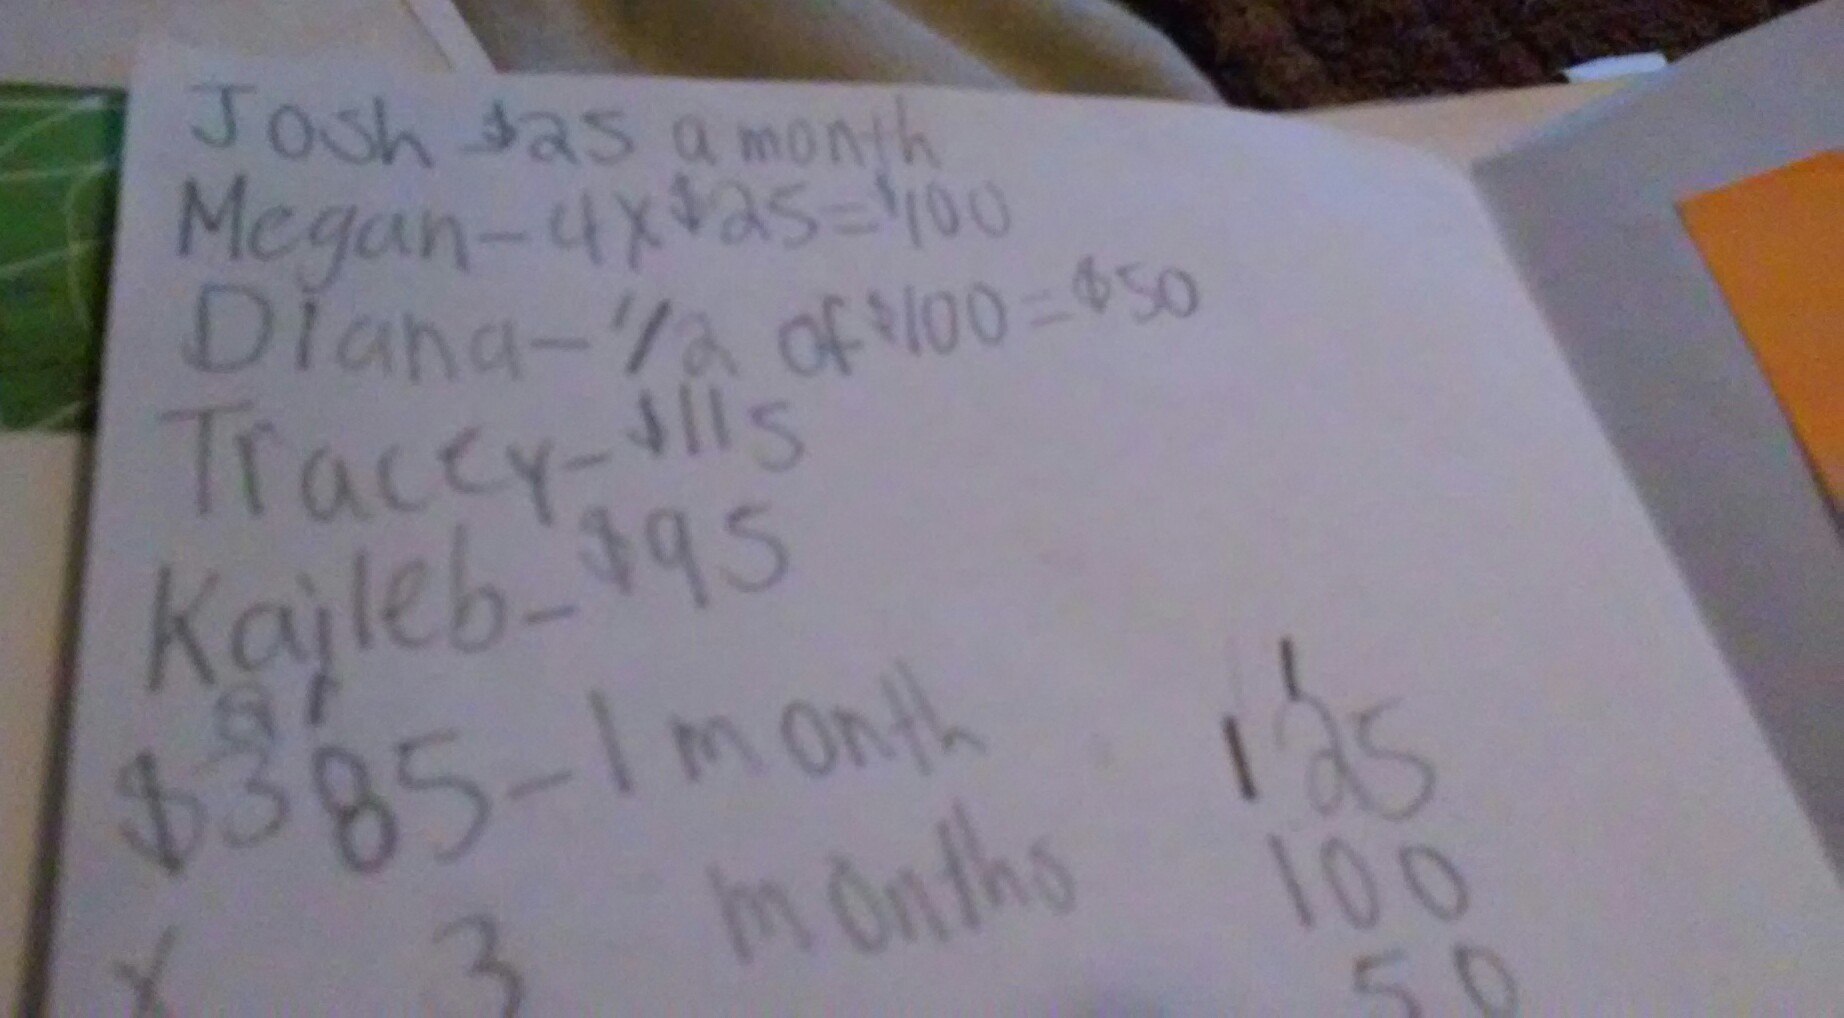 Josh $25 a month
Megan-4x$25=$100
Diana-1/2 of $100=$50
Tracey-$115
Kajleb-$95
2 1
$385-1 month
x 3 months
1
1 25
100
50